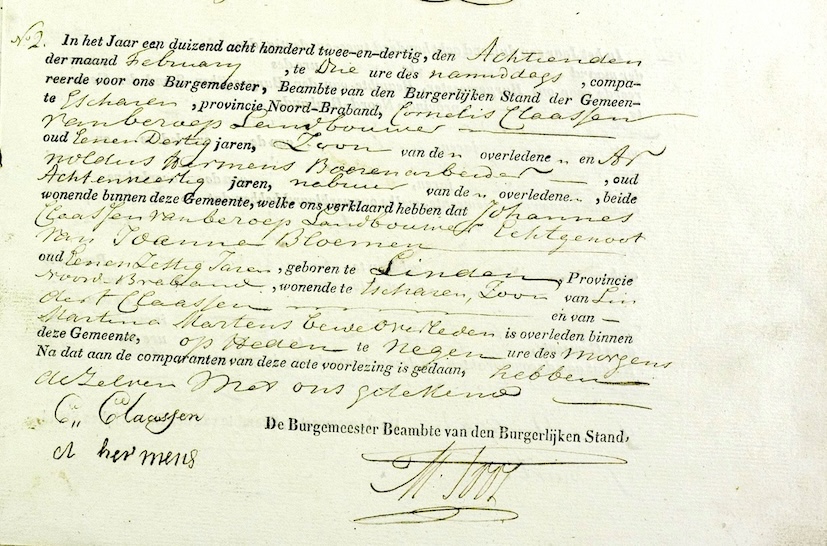 No 2. In het Jaar een duizend acht honderd twee-en-dertig, den Achtienden
der maand February, te Drie ure des namiddags, compa-
reerde voor ons Burgemeester, Beambte van den Burgerlijken Stand der Gemeen-
te Escharen, provincie Noord-Braband, Cornelis Claassen
van beroep Landbouwer
oud Eenen Dertig jaren, Zoon van de n overledene n en Ar
noldus Hermens Boerenarbeider, oud
Achtenveertig jaren, nabuur van de n overledene, beide
wonende binnen deze Gemeente, welke ons verklaard hebben dat Johannes
Claassen van beroep Landbouwer Echtgenoot
van Joanna Bloemen
oud Eenen Zestig Jaren, geboren te Linden, Provincie
Noord-Braband, wonende te Escharen, Zoon van Lin
dert Claassen en van
Martina Martens beweoverleden is overleden binnen
deze Gemeente, op Heden te Negen ure des Morgens
Na dat aan de comparanten van deze acte voorlezing is gedaan, hebben
dezelven Met ons getekend
C. Claassen
De Burgemeester Beambte van den Burgerlijken Stand,
A hermens